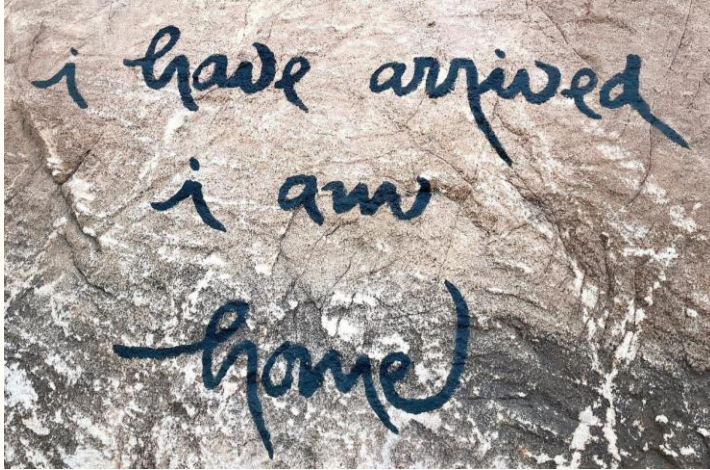 i have arrived
i am
home